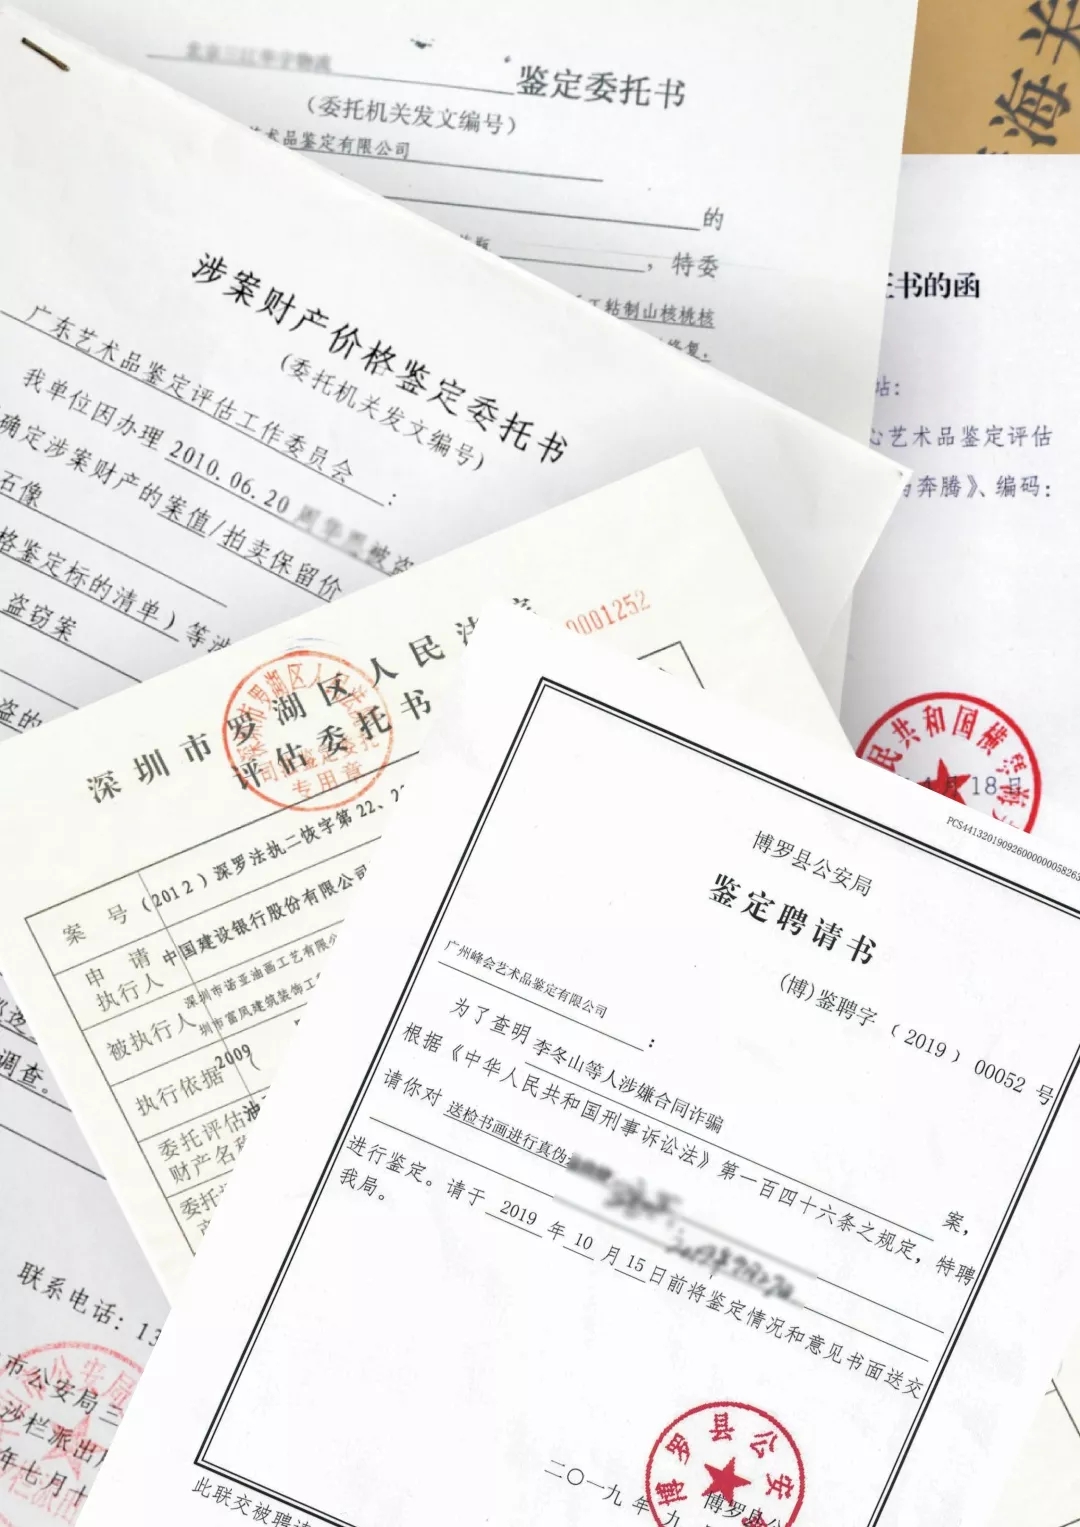 鉴定委托书
（委托机关发文编号）
艺术品鉴定有限公司
的
，特委
工粘制山核桃核
修复，
海关
证书的函
站：
心艺术品鉴定评估
奔腾》、编码：
民共和国横
月18日
涉案财产价格鉴定委托书
(委托机关发文编号)
广东艺术品鉴定评估工作委员会：
我单位因办理2010.06.20
被盗
确定涉案财产的案值/拍卖保留价
石像
格鉴定标的清单）等涉
盗窃案
盗的
调查。
联系电话：13
市公安局三
沙栏派出
年七月十
0001252
深圳市罗湖区人民法
评估委托书
专用章
案号
（2012）深罗法执二恢字第22、2
申请执行人
中国建设银行股份有限公司
被执行人
深圳市诺亚油画工艺有限公
圳市富凤建筑装饰工
执行依据
2009
委托评估
财产名称
委托
PCS441320190926000000058263
博罗县公安局
鉴定聘请书
(博)鉴聘字（2019）00052号
广州峰会艺术品鉴定有限公司：
为了查明李冬山等人涉嫌合同诈骗案，
根据《中华人民共和国刑事诉讼法》第一百四十六条之规定，特聘
请你对送检书画进行真伪
进行鉴定。请于2019年10月15日前将鉴定情况和意见书面送交
我局。
博罗县公安
博罗县公
二〇一九年九
此联交被聘请